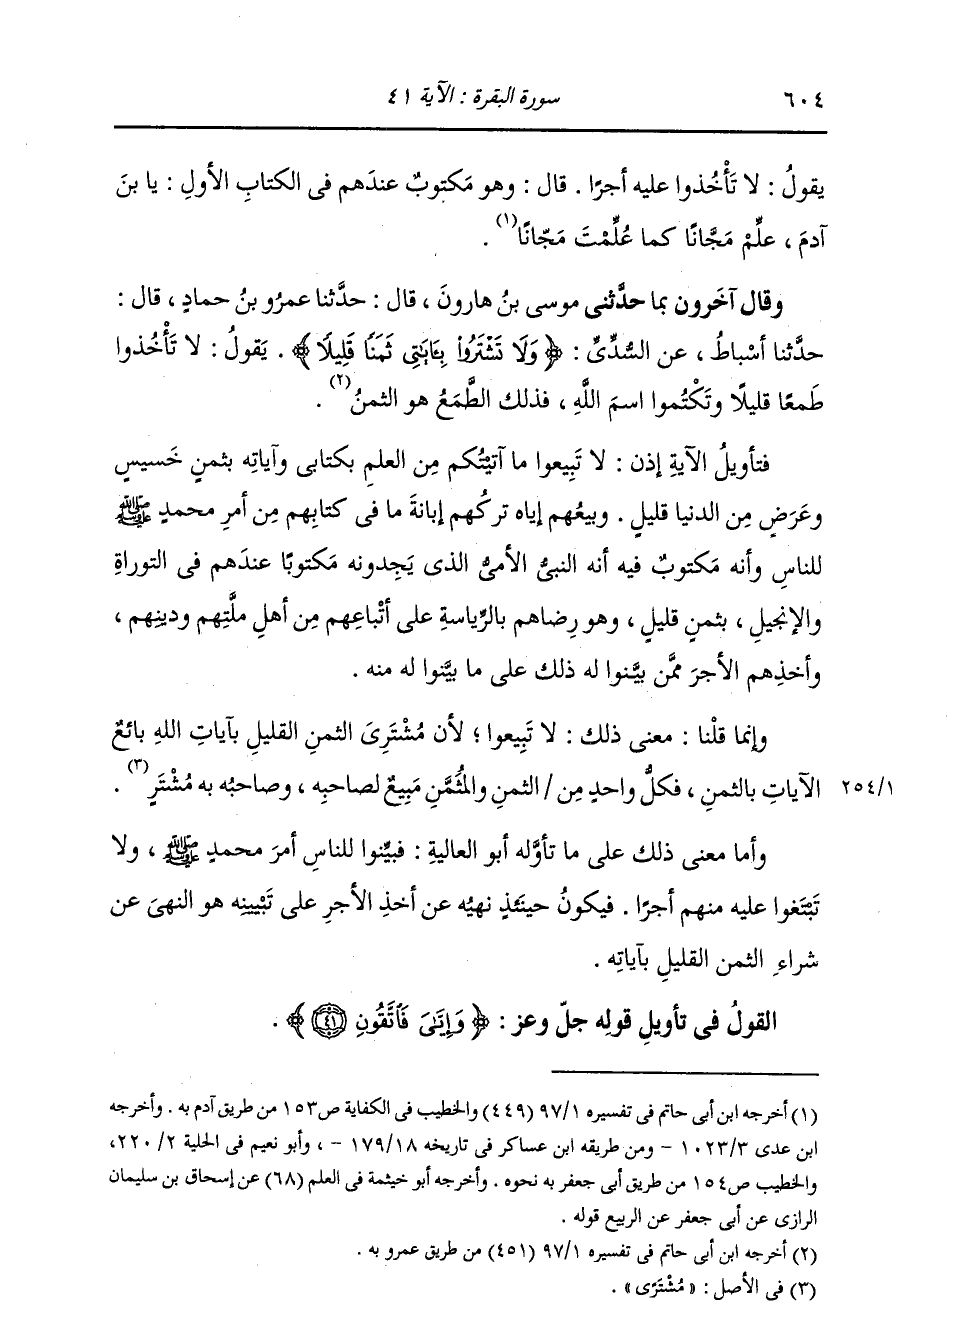 ٦٠٤ سورة البقرة : الآية ٤١
يقولُ : لا تَأْخُذوا عليه أجرًا . قال : وهو مَكتوبٌ عندَهم فى الكتابِ الأولِ : يا بنَ
آدمَ ، علِّمْ مَجَّانًا كما عُلِّمْتَ مَجّانًا(١) .
وقال آخَرون بما حدَّثنى موسى بنُ هارونَ ، قال : حدَّثنا عمرُو بنُ حمادٍ ، قال :
حدَّثنا أسْباطُ ، عن السُّدىِّ : ﴿ وَلَا تَشْتَرُوا۟ بِـَٔايَـٰتِى ثَمَنًا قَلِيلًا ﴾ . يَقولُ : لا تَأْخُذوا
طَمعًا قليلًا وتَكْتُموا اسمَ اللَّهِ ، فذلك الطَّمَعُ هو الثمنُ(٢) .
فتأويلُ الآيةِ إذن : لا تَبِيعوا ما آتيتُكم مِن العلمِ بكتابى وآياتِه بثمنٍ خَسيسٍ
وعَرَضٍ مِن الدنيا قليلٍ . وبيعُهم إياه تركُهم إبانةَ ما فى كتابِهم مِن أمرِ محمدٍ ﷺ
للناسِ وأنه مَكتوبٌ فيه أنه النبىُّ الأمىُّ الذى يَجِدونه مكتوبًا عندَهم فى التوراةِ
والإنجيلِ ، بثمنٍ قليلٍ ، وهو رِضاهم بالرِّياسةِ على أتْباعِهم مِن أهلِ ملَّتِهم ودينِهم ،
وأخذِهم الأجرَ ممَّن بيَّنوا له ذلك على ما بيَّنوا له منه .
وإنما قلْنا : معنى ذلك : لا تَبِيعوا ؛ لأن مُشْتَرِىَ الثمنِ القليلِ بآياتِ اللهِ بائعٌ
الآياتِ بالثمنِ ، فكلُّ واحدٍ مِن / الثمنِ والمُثَمَّنِ مَبِيعٌ لصاحبِه ، وصاحبُه به مُشْتَرٍ(٣) . ٢٥٤/١
وأما معنى ذلك على ما تأوَّله أبو العاليةِ : فبيِّنوا للناسِ أمرَ محمدٍ ﷺ ، ولا
تَبْتَغوا عليه منهم أجرًا . فيكونُ حينَئذٍ نهيُه عن أخذِ الأجرِ على تَبْيينِه هو النهىَ عن
شراءِ الثمنِ القليلِ بآياتِه .
القولُ فى تأويلِ قولِه جلّ وعز : ﴿ وَإِيَّـٰىَ فَٱتَّقُونِ ٤١ ﴾ .
(١) أخرجه ابن أبى حاتم فى تفسيره ٩٧/١ (٤٤٩) والخطيب فى الكفاية ص١٥٣ من طريق آدم به . وأخرجه
ابن عدى ١٠٢٣/٣ - ومن طريقه ابن عساكر فى تاريخه ١٧٩/١٨ - ، وأبو نعيم فى الحلية ٢/ ٢٢٠،
والخطيب ص١٥٤ من طريق أبى جعفر به نحوه . وأخرجه أبو خيثمة فى العلم (٦٨) عن إسحاق بن سليمان
الرازى عن أبى جعفر عن الربيع قوله .
(٢) أخرجه ابن أبى حاتم فى تفسيره ٩٧/١ (٤٥١) من طريق عمرو به .
(٣) فى الأصل : « مُشْتَرًى » .